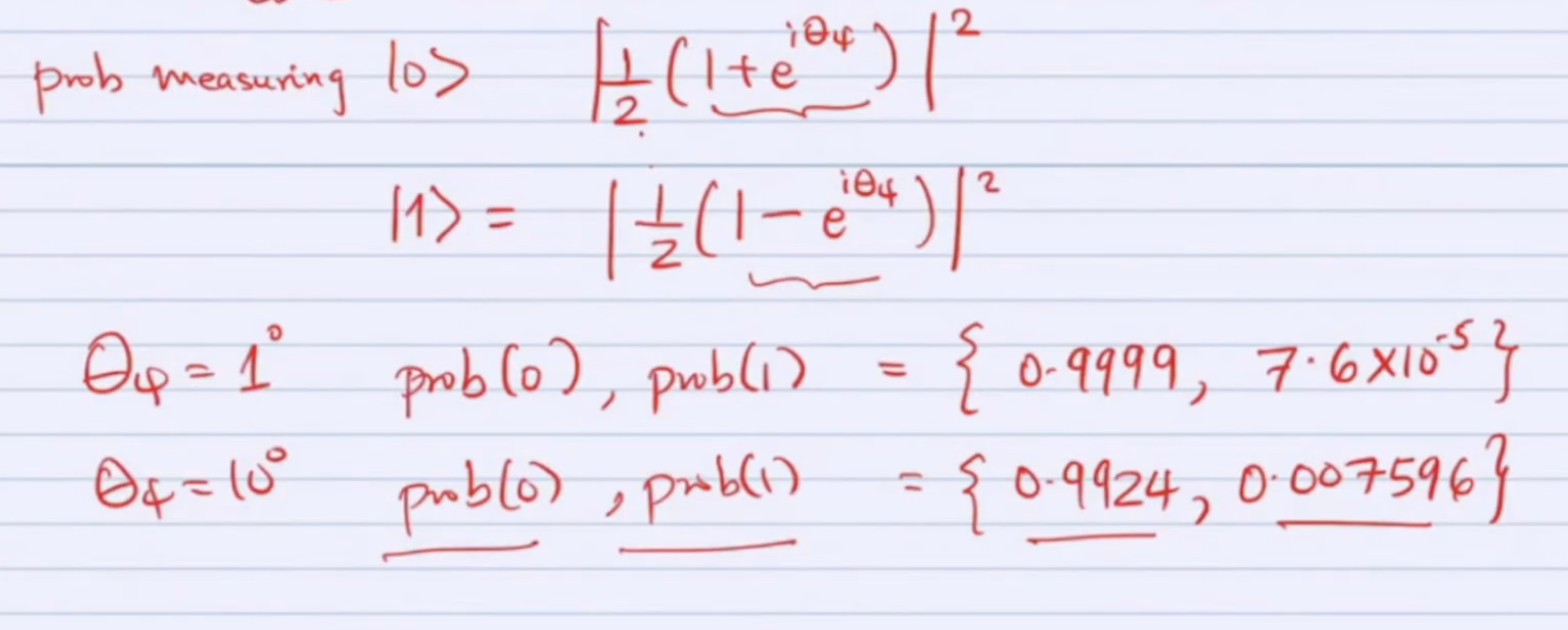 prob measuring |0> |1/2 (1+e^{iθψ})|^2
|1> = |1/2 (1-e^{iθψ})|^2
θψ = 1° prob(0), prob(1) = { 0.9999, 7.6×10^{-5} }
θψ = 10° prob(0), prob(1) = { 0.9924, 0.007596 }